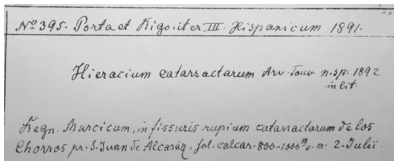 No 395. Porta et Rigo. iter III. Hispanicum 1891.
Hieracium catarractarum Arv-Touv n. sp. 1892
in lit.
Regn. Murcicum, in fissuris rupium catarractarum de los
Chorros pr. S. Juan de Alcaráz, sol. calcar. 800-1000 m. 2 Julii.